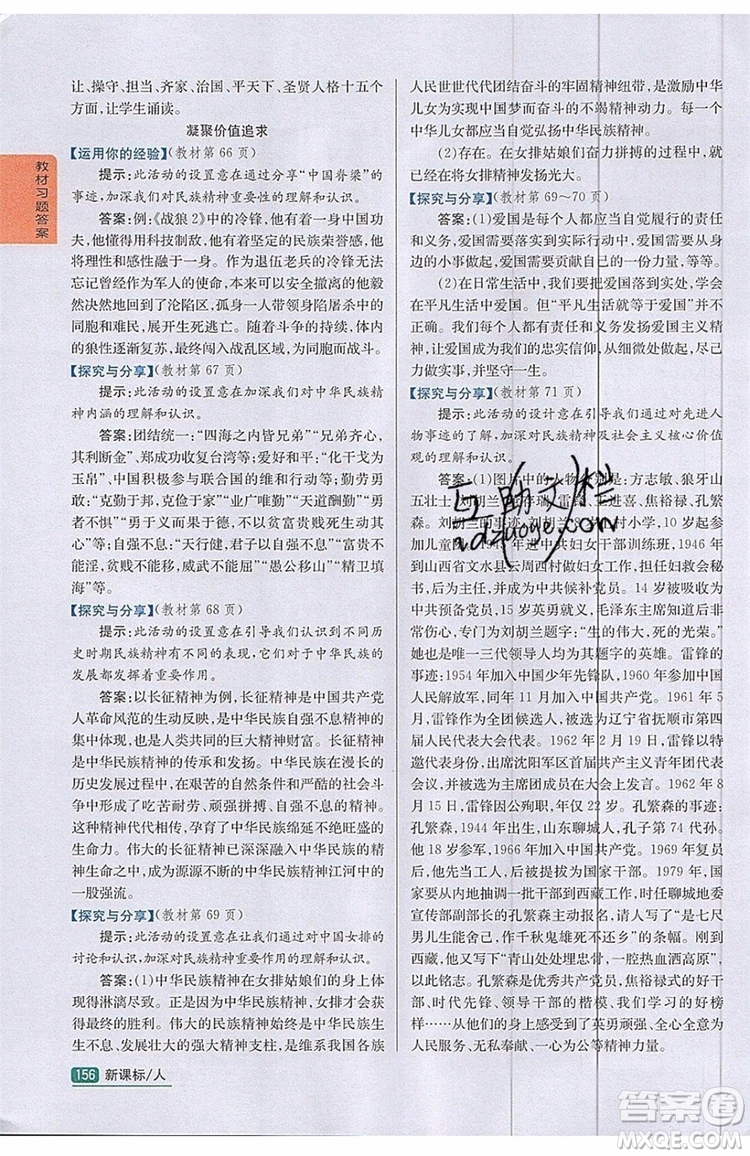 教材习题答案
让、操守、担当、齐家、治国、平天下、圣贤人格十五个
方面,让学生诵读。
凝聚价值追求
【运用你的经验】(教材第 66 页)
提示:此活动的设置意在通过分享“中国脊梁”的
事迹,加深对民族精神重要性的理解和认识。
答案:例:《战狼 2》中的冷锋,他有着一身中国功
夫,他能够用科技制敌,他有着坚定的民族荣誉感,他
将理性与感性融于一身。作为退伍老兵的冷锋无法
忘记曾经作为军人的使命,本来可以安全撤离的他毅
然决然地回到了沦陷区,孤身一人带领身陷屠杀中的
同胞和难民,展开生死逃亡。随着斗争的持续,体内
的狼性逐渐复苏,最终闯入战乱区域,为同胞而战斗。
【探究与分享】(教材第 67 页)
提示:此活动的设置意在加深我们对中华民族精
神内涵的理解和认识。
答案:团结统一:“四海之内皆兄弟”“兄弟齐心,
其利断金”、郑成功收复台湾等。爱好和平:“化干戈为
玉帛”、中国积极参与联合国的维和行动等。勤劳勇
敢:“民生在勤,勤则不匮”“业广惟勤”“天道酬勤”“勇
者不惧”“慎而思之,勤而行之”“君子以果行育德”“勇
者不惧”等。自强不息:“天行健,君子以自强不息”“富
贵不能淫,贫贱不能移,威武不能屈”“愚公移山”“精卫填
海”等。
【探究与分享】(教材第 68 页)
提示:此活动的设置意在引导我们认识到不同历
史时期民族精神有不同的表现,它们对于中华民族的
发展都发挥着重要作用。
答案:以长征精神为例,长征精神,是中国共产党
人革命风范的生动反映,是中华民族自强不息精神的
集中体现,也是人类共同的巨大精神财富。长征精神
是中华民族精神的传承和发展。中华民族在漫长的
历史发展过程中,在艰苦的自然条件和严酷的社会斗
争中形成了吃苦耐劳、顽强拼搏、自强不息的精神。
这种精神代代相传,孕育了中华民族绵延不绝旺盛的
生命力。长征精神深深融入中华民族的血脉和灵魂
之中,成为源源不断汇入中华民族精神江河中的
一股强流。
【探究与分享】(教材第 69 页)
提示:此活动的设置意在让我们通过对中国女排的
讨论和认识,加深对民族精神重要作用的理解和认识。
答案:(1)中华民族精神在女排姑娘们的身上体
现得淋漓尽致。正因为有这样的精神,女排才可以获
得最终的胜利。伟大的民族精神是中华民族生生
不息、发展壮大的强大精神支柱,是维系我国各族
156 新课标/人
人民世世代代团结奋斗的牢固精神纽带,是激励中华
儿女为实现中国梦而奋斗的不竭精神动力。每一个
中华儿女都应当自觉弘扬中华民族精神。
(2)存在。在女排姑娘们奋力拼搏的过程中,已
经将女排精神发扬光大。
【探究与分享】(教材第 69~70 页)
答案:(1)爱国是每个人都应当自觉履行的责任
和义务,爱国需要落实到实际行动中,爱国需要从身边
的小事做起,爱国需要贡献自己的一份力量,等等。
(2)在日常生活中,我们要积极履行爱国的义务,
在平凡生活中爱国。“平凡生活就等于不爱国”是极其
不正确的。我们每个人都有责任和义务发扬爱国主义精
神,让爱国成为我们的忠实信仰,从细微处做起,付诸实
行,并坚守一生。
【探究与分享】(教材第 71 页)
提示:此活动的设计意在加深我们通过对先进人
物事迹的了解,加深对民族精神及社会主义核心价值
观的理解和认识。
答案:(1)图片中的人物分别是:方志敏、狼牙山
五壮士、刘胡兰、董存瑞、雷锋、王进喜、焦裕禄、孔繁
森。刘胡兰的事迹:刘胡兰8岁上村小学,10 岁起参
加儿童团。1945 年进中共妇女干部训练班,1946 年
到山西省文水县云周西村做妇女工作,并担任主席。
以后,她主动为共产党提供情报,成为中共候补党员,为
中共预备党员,15 岁英勇就义。毛泽东知道后
非常伤心,专门为刘胡兰题字:“生的伟大,死的光荣。”
她与雷锋一样成为毛主席为其题字的英雄。雷锋的
事迹:1954 年加入中国少年先锋队,1960 年参加中国
人民解放军,同年 11 月加入中国共产党。1961 年 5
月,雷锋作为全团候选人,被选为辽宁省抚顺市第四
届人民代表大会代表。1962 年 2 月 19 日,雷锋以特
邀代表身份,出席沈阳军区首届共产主义青年团代表
会议,并被选为主席团成员在大会上发言。1962年 8
月 15 日,雷锋因公殉职,年仅 22 岁。孔繁森的事迹:
孔繁森,1944 年出生,山东聊城人,孔子第 74 代孙。
他 18 岁参军,1966 年加入中国共产党。1979 年国家
要从内地抽调一批干部到西藏工作,时任地委
宣传部副部长的孔繁森主动报名,并写下了“是七尺
男儿生能舍己,作千秋鬼雄死不还乡”的条幅。历到西
藏后,他又写下了“青山处处埋忠骨,一腔热血洒高原”,
以此铭志。孔繁森是优秀共产党员,焦裕禄式的好榜
样,时代先锋、领导干部的楷模、我们学习的好榜
样……从他们的身上我们可以感受到了英勇顽强、全心全意为
人民服务、无私奉献、为祖国献身的伟大精神。
互助文栏
zdzuoye.com
答案圈
MXQE.COM